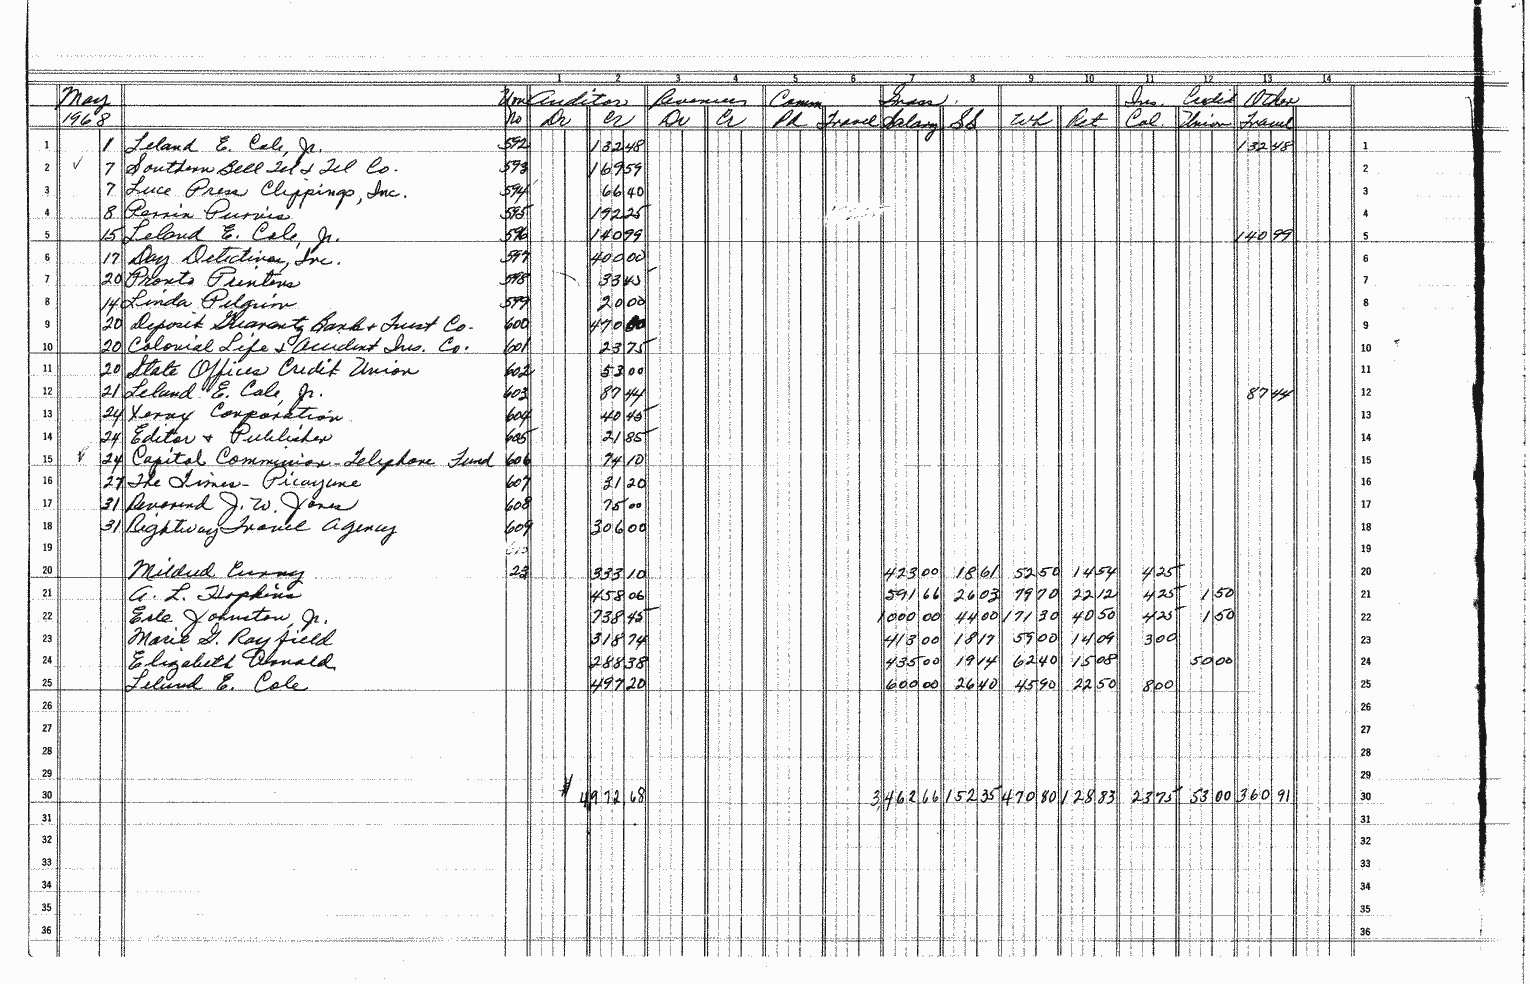 1 2 3 4 5 6 7 8 9 10 11 12 13 14
May Auditor Revenues Comm Gross Ins. Credit Other
1968 No Dr Cr Dr Cr Travel Salary SS Wh Ret Col. Union Travel
1 1 Leland E. Cole, Jr. 592 132 48 132 48 1
2 √ 7 Southern Bell Tel & Tel Co. 593 169 59 2
3 7 Luce Press Clippings, Inc. 594 66 40 3
4 8 Perrin Purvis 595 192 25 4
5 15 Leland E. Cole, Jr. 596 140 99 140 99 5
6 17 Day Detectives, Inc. 597 400 00 6
7 20 Pronto Printers 598 33 45 7
8 14 Linda Pilgrim 599 20 00 8
9 20 Deposit Guaranty Bank & Trust Co. 600 470 80 9
10 20 Colonial Life & Accident Ins. Co. 601 23 75 10
11 20 State Offices Credit Union 602 53 00 11
12 21 Leland E. Cole, Jr. 603 87 44 87 44 12
13 24 Xerox Corporation 604 40 45 13
14 24 Editor & Publisher 605 21 85 14
15 √ 24 Capitol Commission-Telephone Fund 606 74 10 15
16 27 The Times-Picayune 607 31 20 16
17 31 Reverend J. W. Jones 608 75 00 17
18 31 Rightway Travel Agency 609 306 00 18
19 19
20 Mildred Curry 23 333 10 423 00 18 61 52 50 14 54 4 25 20
21 A. L. Hopkins 458 06 591 66 26 03 79 70 22 12 4 25 1 50 21
22 Erle Johnston, Jr. 738 45 1000 00 44 00 171 30 40 50 4 25 1 50 22
23 Marie G. Rayfield 318 74 413 00 18 17 59 00 14 09 3 00 23
24 Elizabeth Arnold 288 38 435 00 19 14 62 40 15 08 50 00 24
25 Leland E. Cole 497 20 600 00 26 40 45 90 22 50 8 00 25
26 26
27 27
28 28
29 29
30 # 4972 68 3,462 66 152 35 470 80 128 83 23 75 53 00 360 91 30
31 31
32 32
33 33
34 34
35 35
36 36